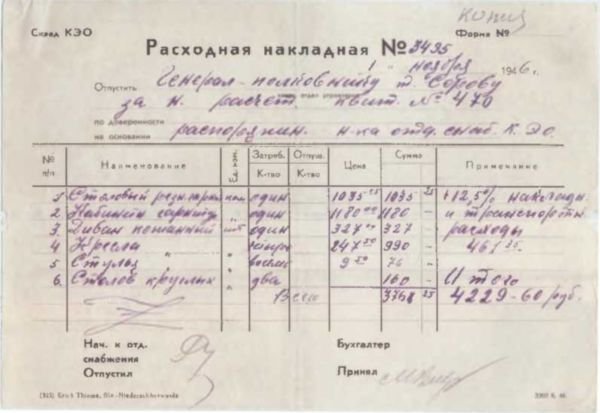 копия
Склад КЭО
Форма №
Расходная накладная № 3495
" ноября 1946 г.
Отпустить Генерал-полковнику т. Серову
за н. расчет. квит. № 470
по доверенности
на основании распоряжен. н-ка отд. снаб. КЭО.
№ п/п Наименование Ед. изм. Затреб. К-тво Отпущ. К-тво Цена Сумма Примечание
1 Столовый гарнитур один 1035 25 1035 25 +12,5% накладн.
2 Кабинетн гарнитур " один 1180 1180 — и транспортн.
3 Диван кожанный шт один 327 327 расходы
4 Кресла " четыре 247 50 990 461 35.
5 Стулья " восемь 9 50 76
6. Столов круглых " два 160 — Итого
Всего 3768 25 4229-60 руб.
Нач. к отд. снабжения
Бухгалтер
Отпустил
Принял